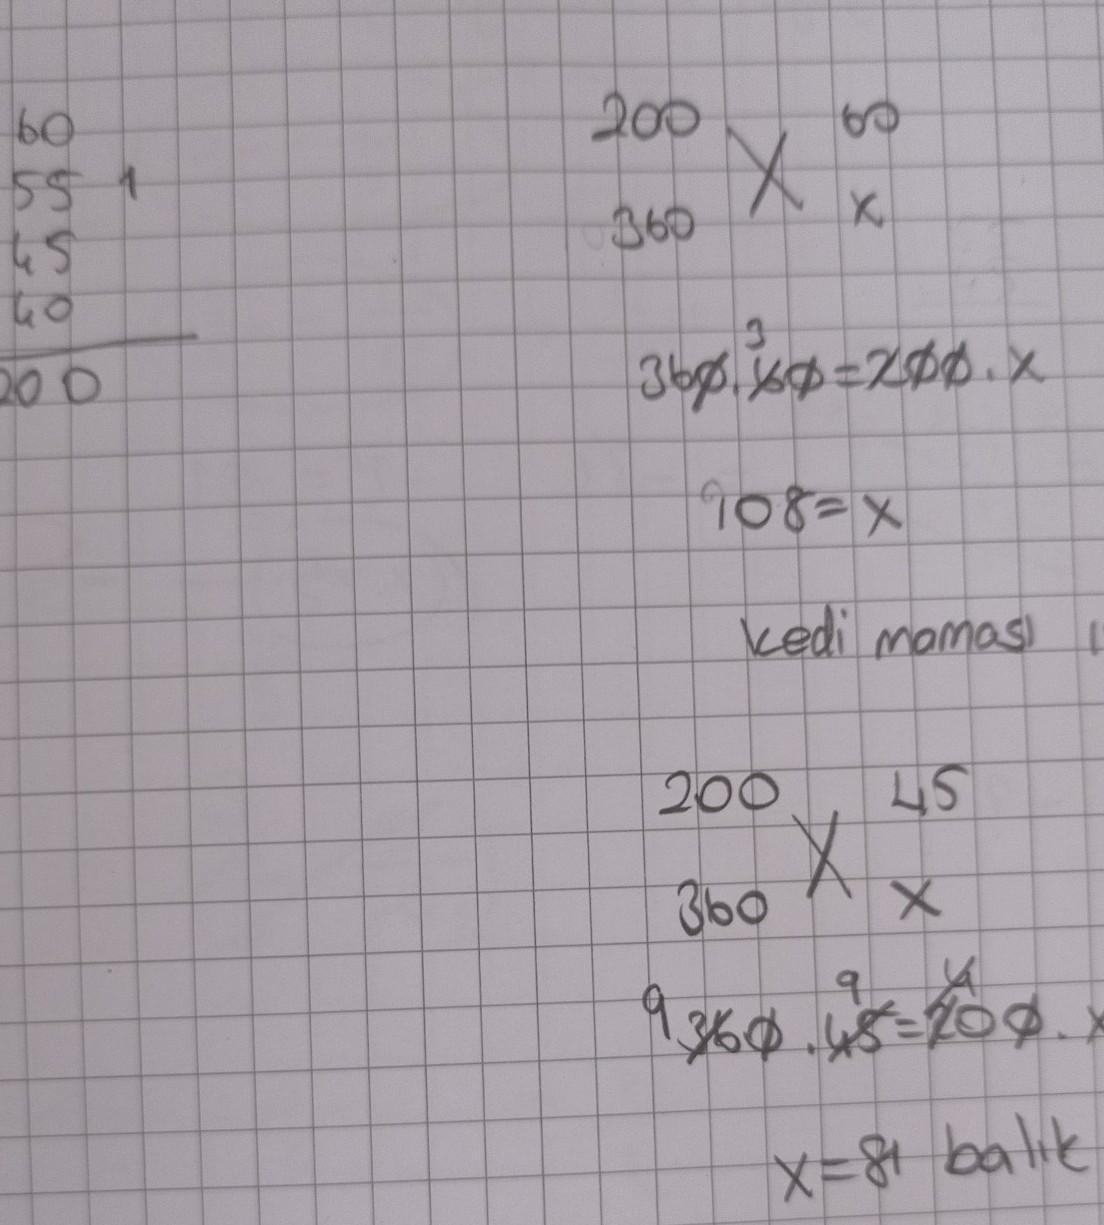 60
55 1
45
40
200
200 X 60
360 x
3
360.60=200.x
108=x
kedi maması
200 X 45
360 x
9 4
9 360.45=200.x
x=81 balık